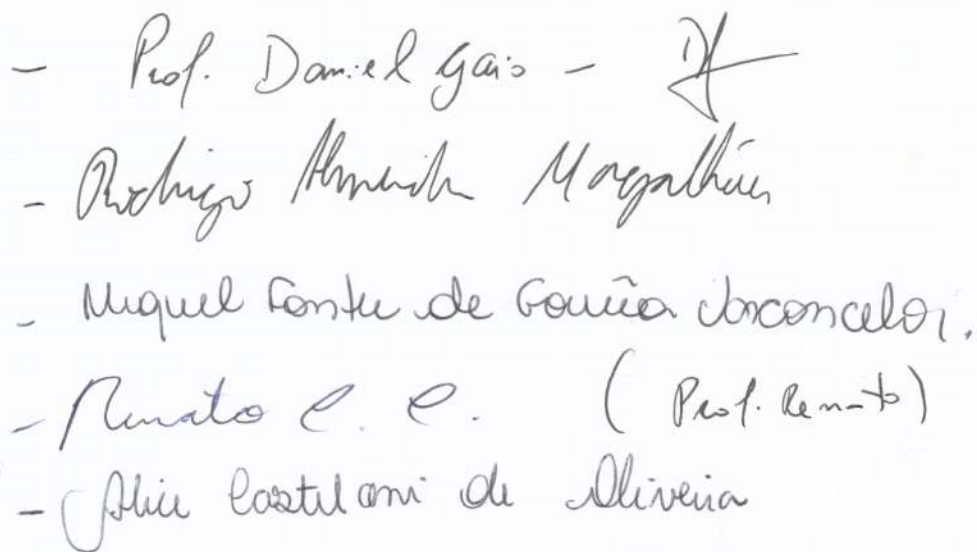 - Prof. Daniel Gaio -
- Rodrigo Almeida Magalhães
- Miguel Fontes de Gouvêa Vasconcelos.
- Renato C. C. (Prof. Renato)
- Alice Castelani de Oliveira